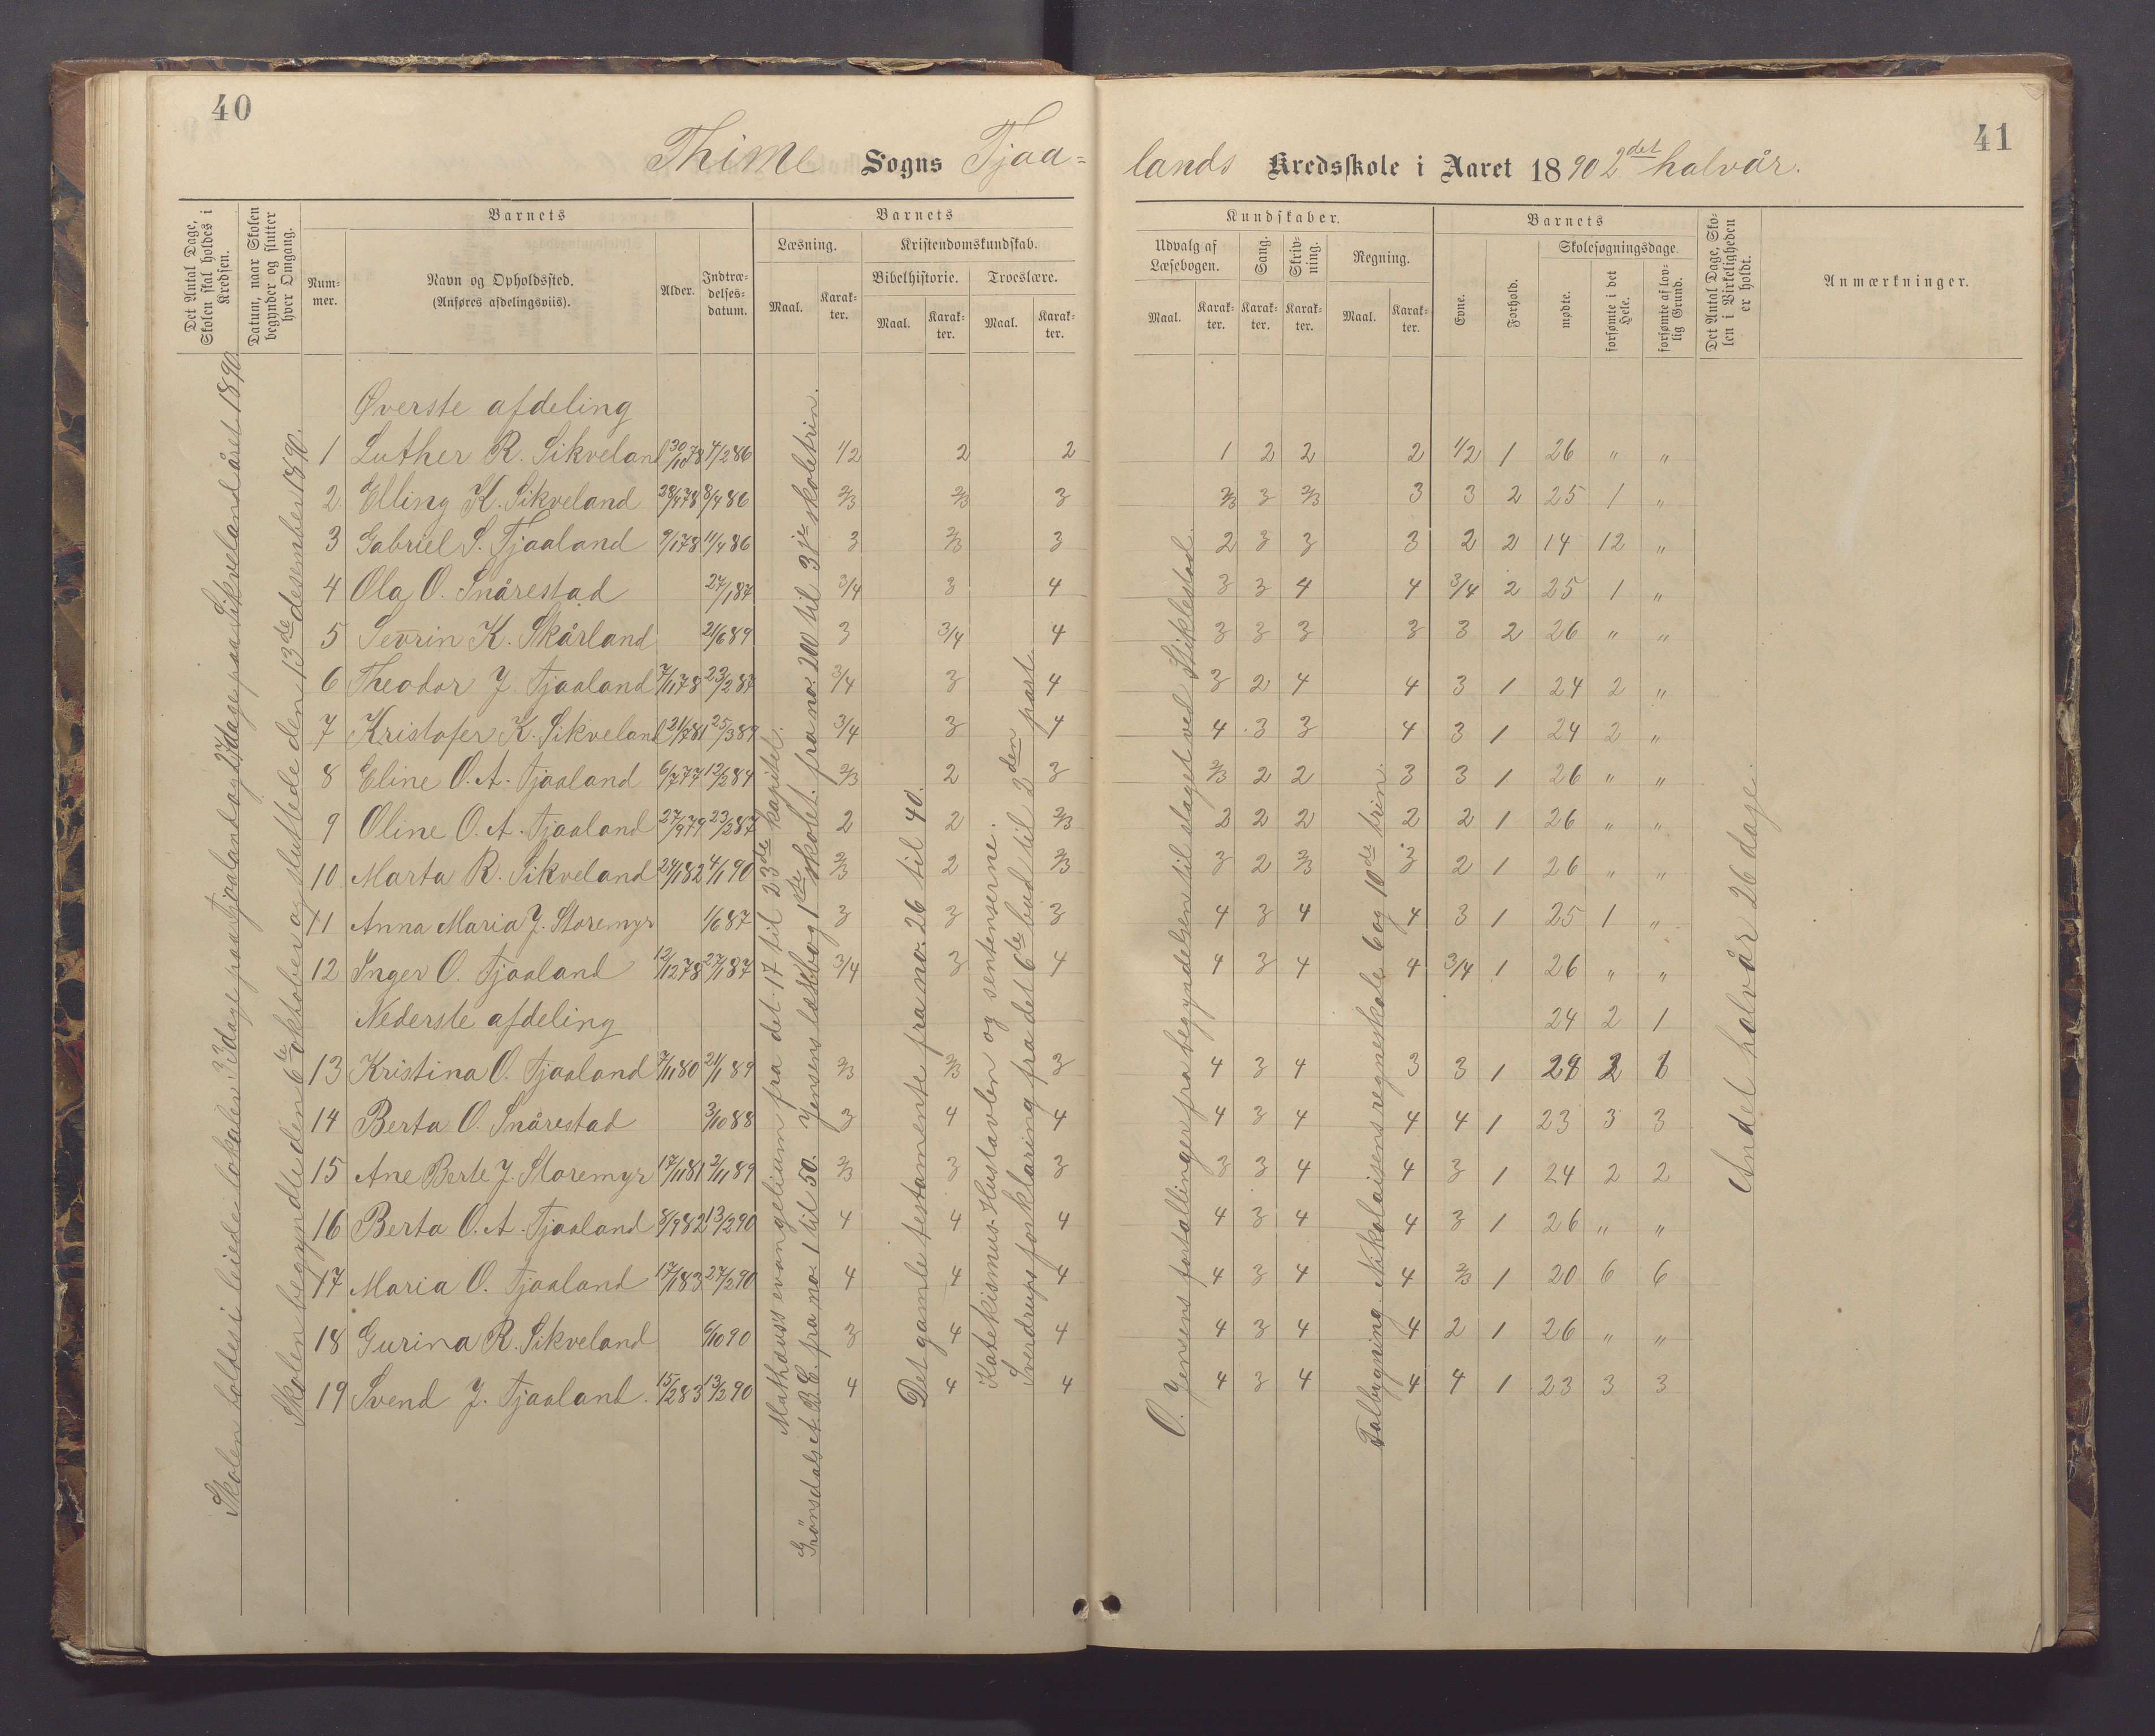 40
41
Thime Sogns Tjaa=
lands Kredsskole i Aaret 1890 2det halvår.
Det Antal Dage, Skolen skal holdes i Kredsen.
Datum, naar Skolen begynder og slutter hver Omgang.
Barnets
Nummer.
Navn og Opholdssted.
(Anføres afdelingsviis).
Alder.
Indtrædelsesdatum.
Barnets
Læsning.
Kristendomskundskab.
Bibelhistorie.
Troeslære.
Maal. Karakter. Maal. Karakter. Maal. Karakter.
Kundskaber.
Udvalg af Læsebogen.
Sang.
Skrivning.
Regning.
Maal. Karakter. Karakter. Karakter. Maal. Karakter.
Barnets
Evne.
Forhold.
Skolesøgningsdage.
mødte.
forsømte i det Hele.
forsømte af lovlig Grund.
Det Antal Dage, Skolen i Virkeligheden er holdt.
Anmærkninger.
Skolen holdes i leiede lokaler 33 dage paa Tjaaland og 27 dage paa Sikveland året 1890.
Skolen begyndte den 6te oktober og sluttede den 13de desember 1890.
Mathæuss evangelium fra det 17 til 23de kapitel.
Grønsdalset B.C. fra no. 1 til 50. Jensens læsebog 1ste skolet. fra no. 200 til 3dje skoletrin.
Det gamle testamente fra no. 26 til 40.
Katekismus-Hustavlen og sentenserne.
Sverdrups forklaring fra det 6te bud til 2den part.
O. Jensens fortællinger fra begyndelsen til slaget ved Stiklestad.
Talbygning Nikolaisens regneskole 6 og 10de trin.
Andet halvår 26 dage.
Øverste afdeling
1 Luther R. Sikveland 30/10 78 4/2 86 1/2 2 2 1 2 2 2 1/2 1 26 " "
2 Elling K. Sikveland 28/4 78 8/4 86 2/3 2/3 3 2/3 3 2/3 3 3 2 25 1 "
3 Gabriel S. Tjaaland 9/1 78 11/4 86 3 2/3 3 2 3 3 3 2 2 14 12 "
4 Ola O. Snårestad 27/1 87 3/4 3 4 3 3 4 4 3/4 2 25 1 "
5 Sevrin K. Skårland 21/6 89 3 3/4 4 3 3 3 3 3 2 26 " "
6 Theodor J. Tjaaland 7/11 78 23/2 87 3/4 3 4 3 2 4 4 3 1 24 2 "
7 Kristofer K. Sikveland 21/7 81 25/3 89 3/4 3 4 4 3 3 4 3 1 24 2 "
8 Eline O. A. Tjaaland 6/7 77 12/2 84 2/3 2 3 2/3 2 2 3 3 1 26 " "
9 Oline O. A. Tjaaland 27/9 79 23/2 87 2 2 2/3 2 2 2 2 2 1 26 " "
10 Marta R. Sikveland 24/1 82 4/1 90 2/3 2 2/3 3 2 2/3 3 2 1 26 " "
11 Anna Maria J. Storemyr 1/6 87 3 3 3 4 3 4 4 3 1 25 1 "
12 Inger O. Tjaaland 12/12 78 27/1 87 3/4 3 4 4 3 4 4 3/4 1 26 " "
Nederste afdeling 24 2 1
13 Kristina O. Tjaaland 7/11 80 21/1 89 2/3 2/3 3 4 3 4 3 3 1
14 Berta O. Snårestad 3/10 88 3 4 4 4 3 4 4 4 1 23 3 3
15 Ane Berte J. Storemyr 17/11 81 2/11 89 2/3 3 3 3 3 4 4 3 1 24 2 2
16 Berta O. A. Tjaaland 8/9 82 13/2 90 4 4 4 4 3 4 4 3 1 26 " "
17 Maria O. Tjaaland 17/1 83 27/2 90 4 4 4 4 3 4 4 2/3 1 20 6 6
18 Gurina R. Sikveland 6/10 90 3 4 4 4 3 4 4 2 1 26 " "
19 Svend J. Tjaaland. 15/2 83 13/2 90 4 4 4 4 3 4 4 4 1 23 3 3